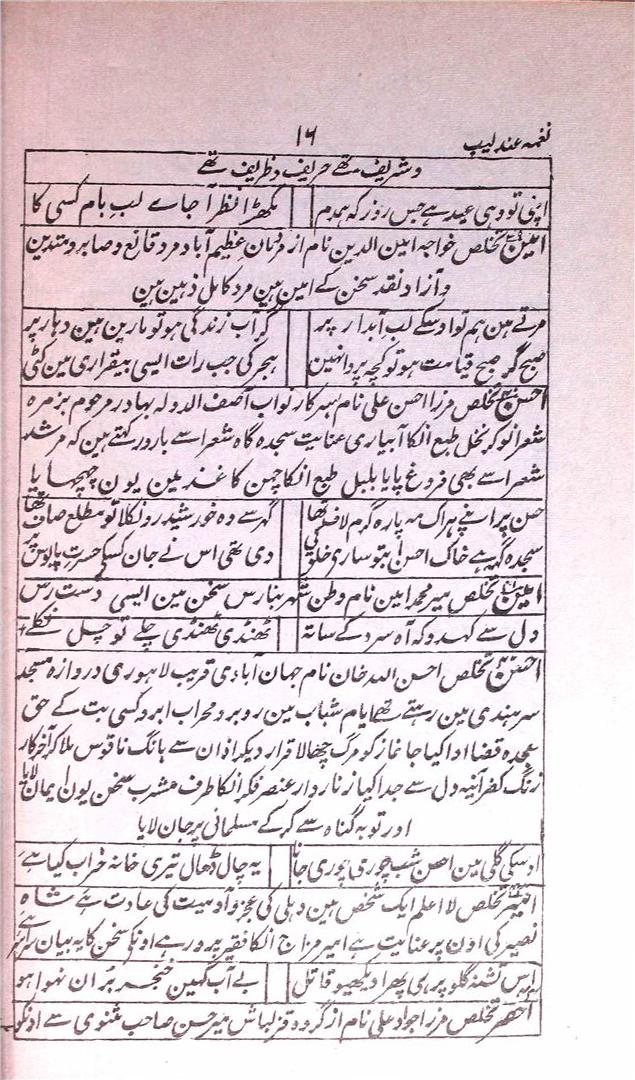 نغمہ عندلیب ۱۶
وشریف تھے حریف وظریف تھے
اپنی تو وہی عید ہے جس روز کہ ہمدم مکھڑا نظر آ جاے لب بام کسی کا
امین تخلص خواجہ امین الدین نام از مردمان عظیم آباد مرد قانع وصابر ومتدین
وآزاد نقد سخن کے امین ہین مرد کامل ذہین ہین
مرتے ہین ہم تو اوسکے لب آبدار پر گر آب زندگی ہو تو مارین ہین دہار پر
صبح گر صبح قیامت ہو تو کچھ پروا نہین ہجر کی جب رات ایسی بیقراری مین کٹی
احسن تخلص مرزا احسن علی نام سرکار نواب آصف الدولہ بہادر مرحوم بزمرہ
شعرا نوکر نخل طبع انکا آبیاری عنایت سجدہ گاہ شعرا سے بارور کہتے ہین کہ مرشد
شعرا سے بھی فروغ پایا بلبل طبع انکا چمن کاغذ مین یون چہچہایا
حسن پر اپنے ہر اک مہ پارہ گرم لاف تھا گہر سے وہ خورشید رو نکلا تو مطلع صاف تھا
سجدہ گہ ہے خاک احسن اب تو ساری خلق کی دی تھی اس نے جان کسکی حسرت پابوس پر
امین تخلص میر محمد امین نام وطن شہر بنارس سخن مین ایسی دست رس
دل سے کہدو کہ آہ سرد کے ساتھ ٹھنڈی ٹھنڈی چلے تو چل نکلے
احسن تخلص احسن اللہ خان نام جہان آبادی قریب لاہوری دروازہ مسجد
سرہندی مین رہتے تھے ایام شباب مین روبرو محراب ابرو کسی بت کے حق
سجدہ قضا ادا کیا جا نماز کو مرگ چھالا قرار دیکر اذان سے بانگ ناقوس ملا کر آخر کار
زنگ کفر آئینہ دل سے جدا کیا زنار دار عنصر فکر انکا طرف مشرب سخن یون ایمان لایا
اور توبہ گناہ سے کر کے مسلمانی پر جان لایا
اوسکی گلی مین احسن شب چوری چوری جانا یہ چال ڈھال تیری خانہ خراب کیا ہے
امیر تخلص لا اعلم ایک شخص ہین دہلی کی عجز وآدمیت کی عادت ہے شاہ
نصیر کی اون پر عنایت ہے امیر مزاج انکا فقیر پرور ہے اونکو سخن کا یہ بیان
اس تشنہ گلو پر ہی پھرا دیکھیو قاتل بے آب کہین خنجر بران نہوا ہو
احقر تخلص مرزا جواد علی نام از گروہ قزلباش میر حسن صاحب مثنوی سے اونکو